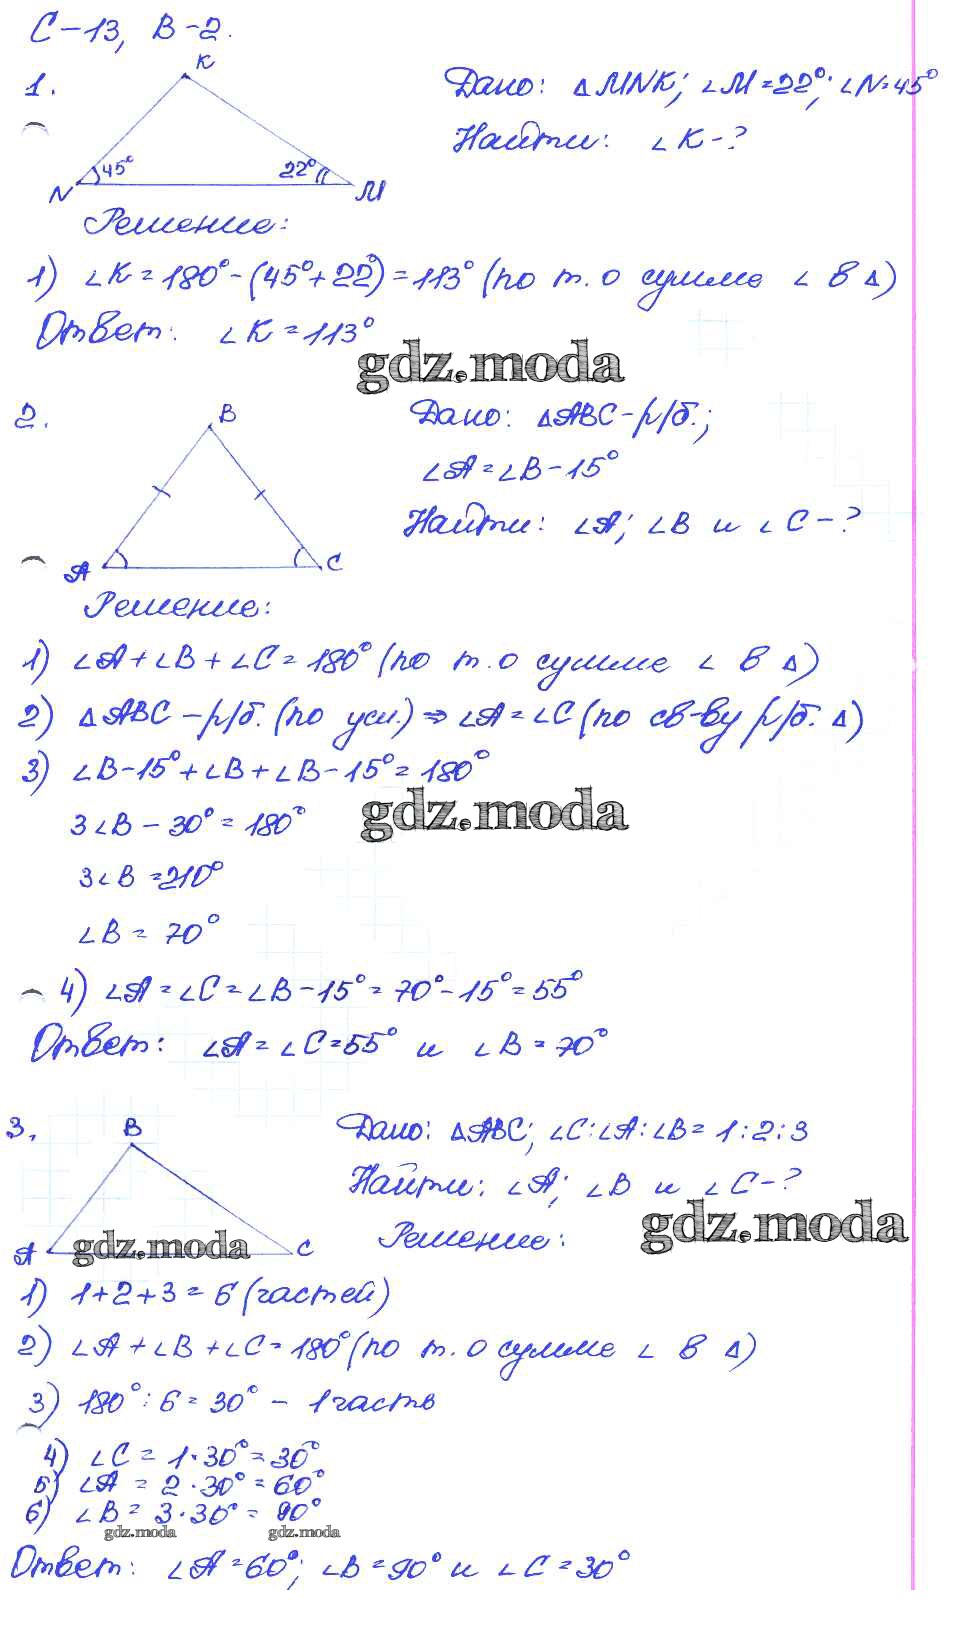 С-13, В-2.
1.
K
45°
22°
N
M
Дано: △MNK; ∠M=22°; ∠N=45°
Найти: ∠K-?
Решение:
1) ∠K=180°-(45°+22°)=113° (по т. о сумме ∠ в △)
Ответ: ∠K=113°
gdz.moda
2.
B
A
C
Дано: △ABC-р/б.;
∠A=∠B-15°
Найти: ∠A; ∠B и ∠C-?
Решение:
1) ∠A+∠B+∠C=180° (по т. о сумме ∠ в △)
2) △ABC-р/б. (по усл.) ⇒ ∠A=∠C (по св-ву р/б. △)
3) ∠B-15°+∠B+∠B-15°=180°
gdz.moda
3∠B-30°=180°
3∠B=210°
∠B=70°
4) ∠A=∠C=∠B-15°=70°-15°=55°
Ответ: ∠A=∠C=55° и ∠B=70°
3.
B
A
C
gdz.moda
Дано: △ABC; ∠C:∠A:∠B=1:2:3
Найти: ∠A; ∠B и ∠C-?
gdz.moda
Решение:
1) 1+2+3=6 (частей)
2) ∠A+∠B+∠C=180° (по т. о сумме ∠ в △)
3) 180°:6=30° - 1 часть
4) ∠C=1·30°=30°
5) ∠A=2·30°=60°
6) ∠B=3·30°=90°
gdz.moda gdz.moda
Ответ: ∠A=60°; ∠B=90° и ∠C=30°